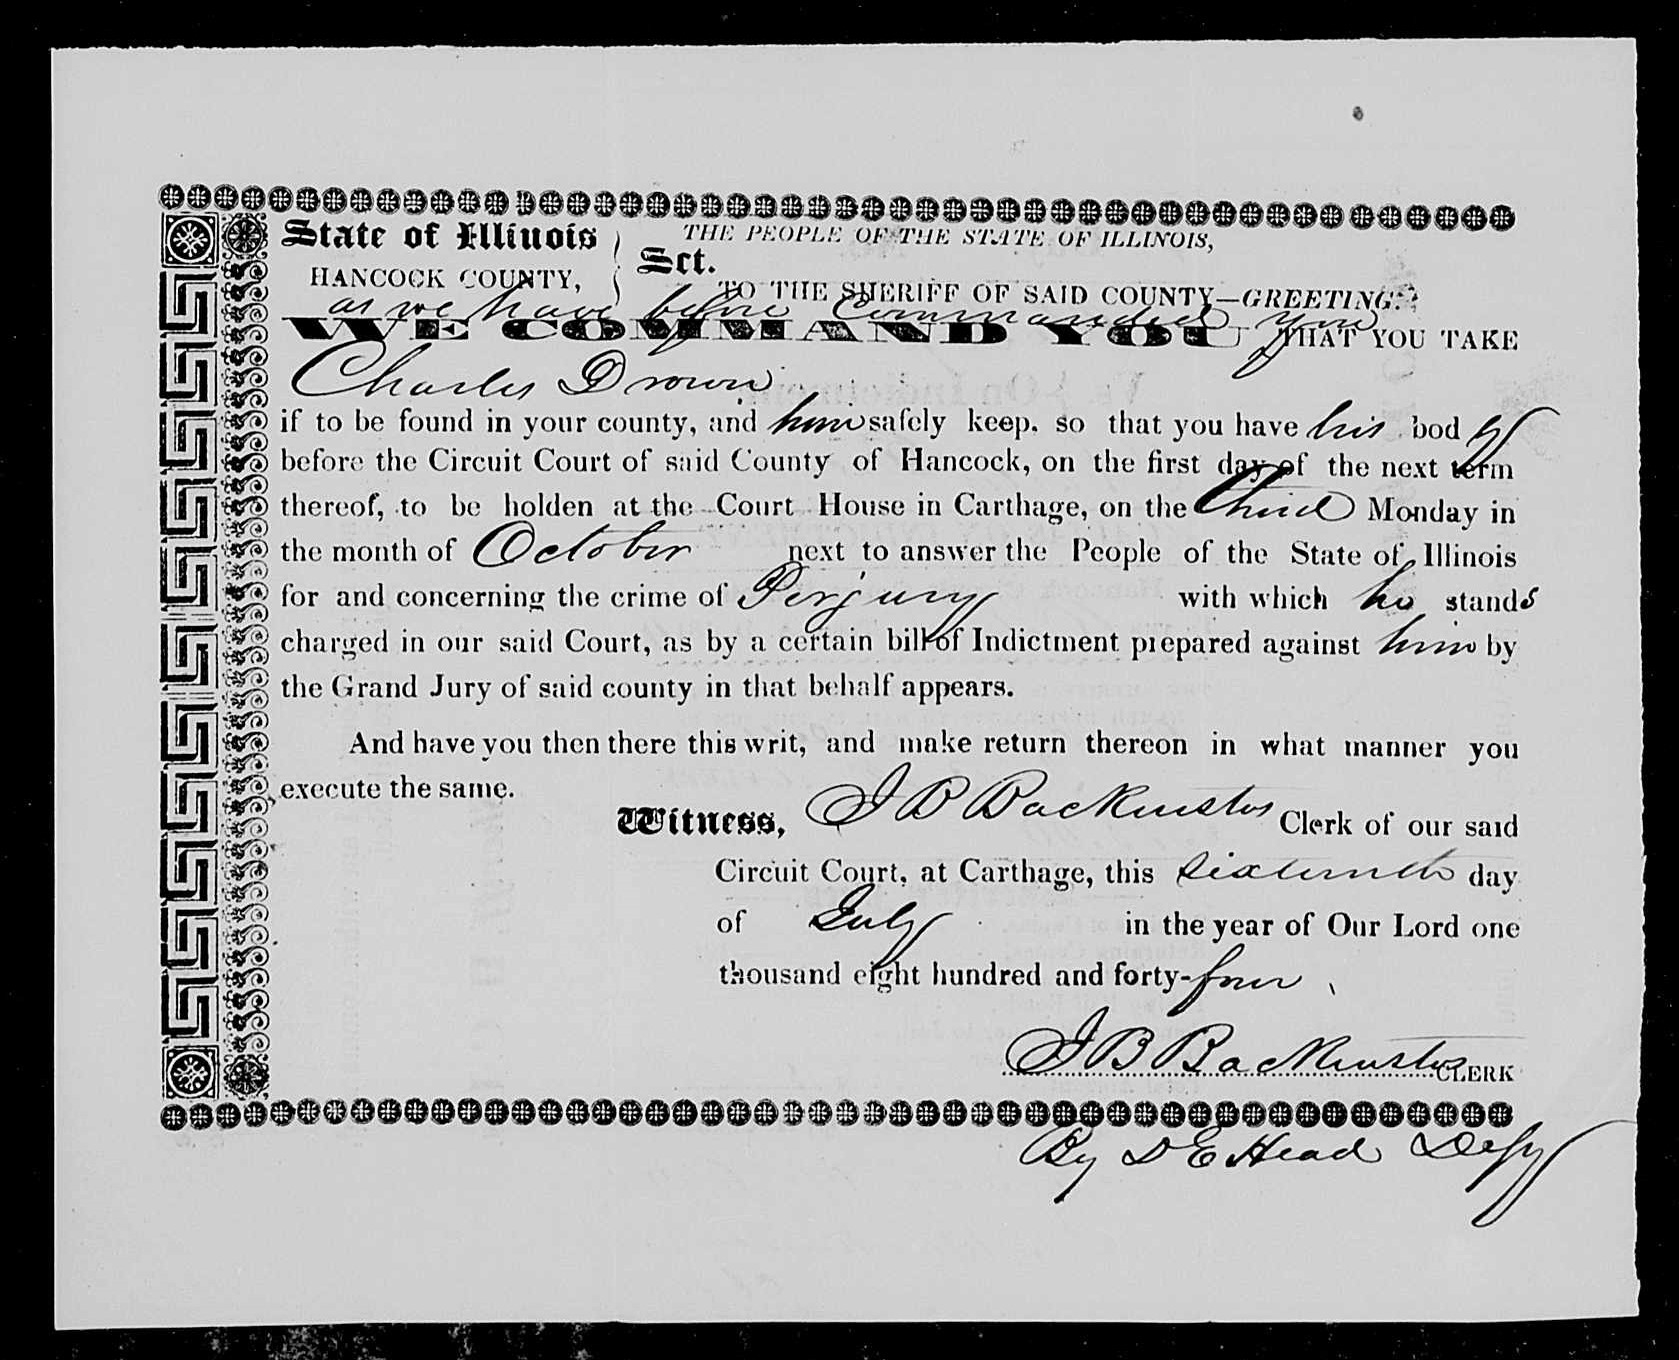 State of Illinois
HANCOCK COUNTY,
Sct.
THE PEOPLE OF THE STATE OF ILLINOIS,
TO THE SHERIFF OF SAID COUNTY—GREETING:
as we have before Commanded you
WE COMMAND YOU THAT YOU TAKE
Charles Drown
if to be found in your county, and him safely keep, so that you have his body
before the Circuit Court of said County of Hancock, on the first day of the next term
thereof, to be holden at the Court House in Carthage, on the third Monday in
the month of October next to answer the People of the State of Illinois
for and concerning the crime of Perjury with which he stands
charged in our said Court, as by a certain bill of Indictment prepared against him by
the Grand Jury of said county in that behalf appears.
And have you then there this writ, and make return thereon in what manner you
execute the same.
Witness, J B Backenstos Clerk of our said
Circuit Court, at Carthage, this sixteenth day
of July in the year of Our Lord one
thousand eight hundred and forty-four
J B Backenstos CLERK
By D E Head Depy